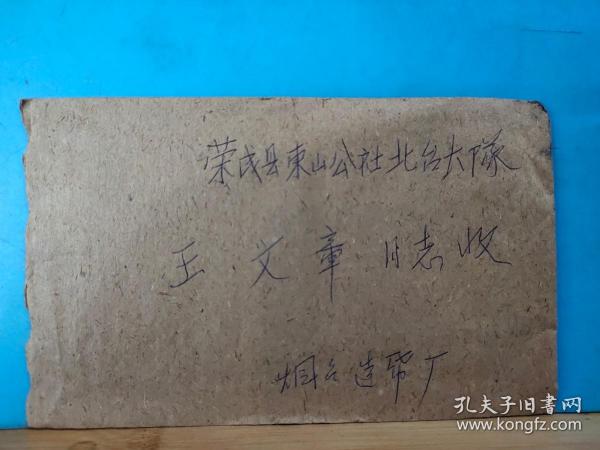 荣成县東山公社北台大隊
王文章同志收
烟台造幣厂
孔夫子旧書网
www.kongfz.com